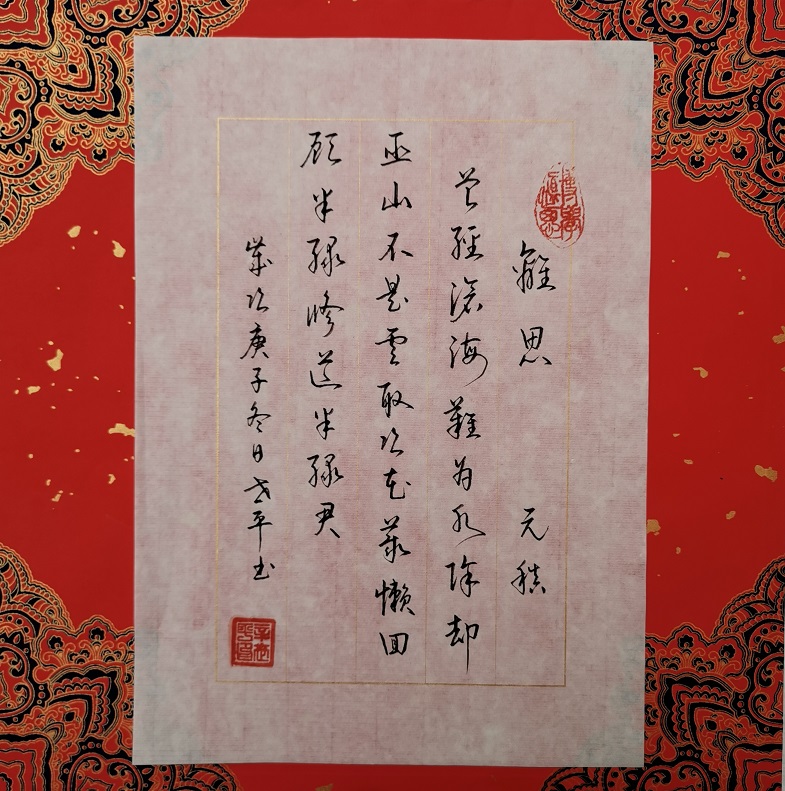 離思 元稹
曾經滄海難為水除却
巫山不是雲取次花叢懶回
顧半緣修道半緣君
歲次庚子冬日 平书